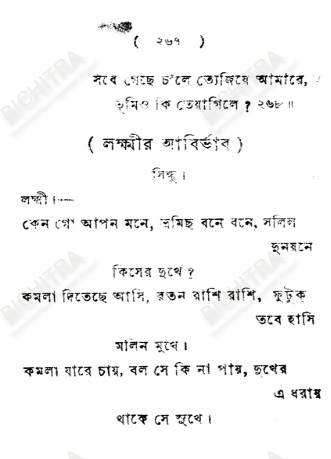 ( ২৬৭ )
সবে গেছে চ'লে ত্যেজিয়ে আমারে,
তুমিও কি তেয়াগিলে ? ২৬৮॥
( লক্ষ্মীর আবির্ভাব )
সিন্ধু ।
লক্ষ্মী ।—
কেন গো আপন মনে, ভ্রমিছ বনে বনে, সলিল
দুনয়নে
কিসের দুখে ?
কমলা দিতেছে আসি, রতন রাশি রাশি, ফুটুক্
তবে হাসি
মলিন মুখে ।
কমলা যারে চায়, বল সে কি না পায়, দুখের
এ ধরায়
থাকে সে সুখে ।
BICHITRA
BICHITRA
BICHITRA
BICHITRA